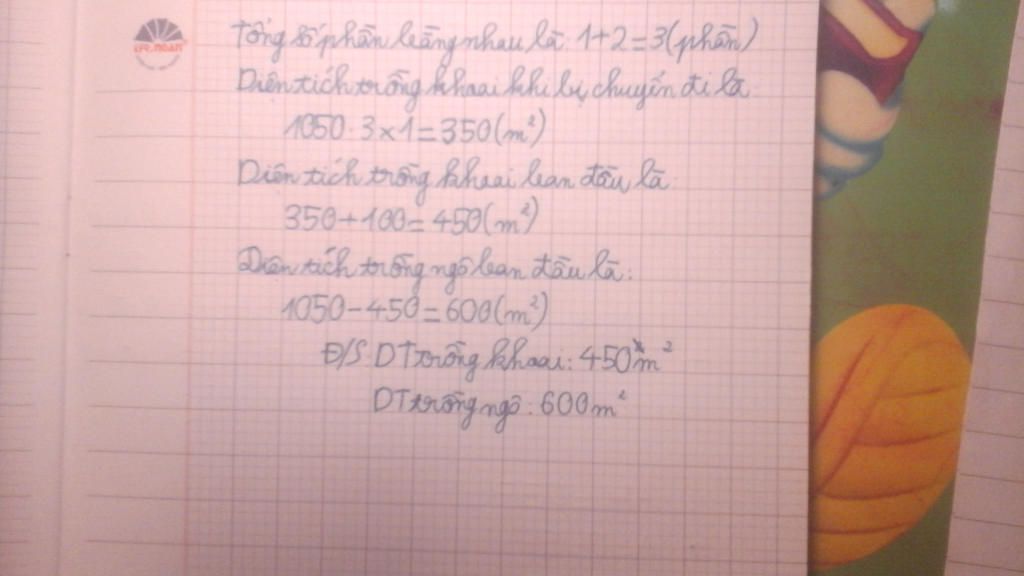 Tổng số phần bằng nhau là: 1+2=3(phần)
Diện tích trồng khoai khi bị chuyển đi là:
1050:3×1=350(m²)
Diện tích trồng khoai ban đầu là:
350+100=450(m²)
Diện tích trồng ngô ban đầu là:
1050-450=600(m²)
Đ/S DT trồng khoai: 450 m²
DT trồng ngô: 600m²